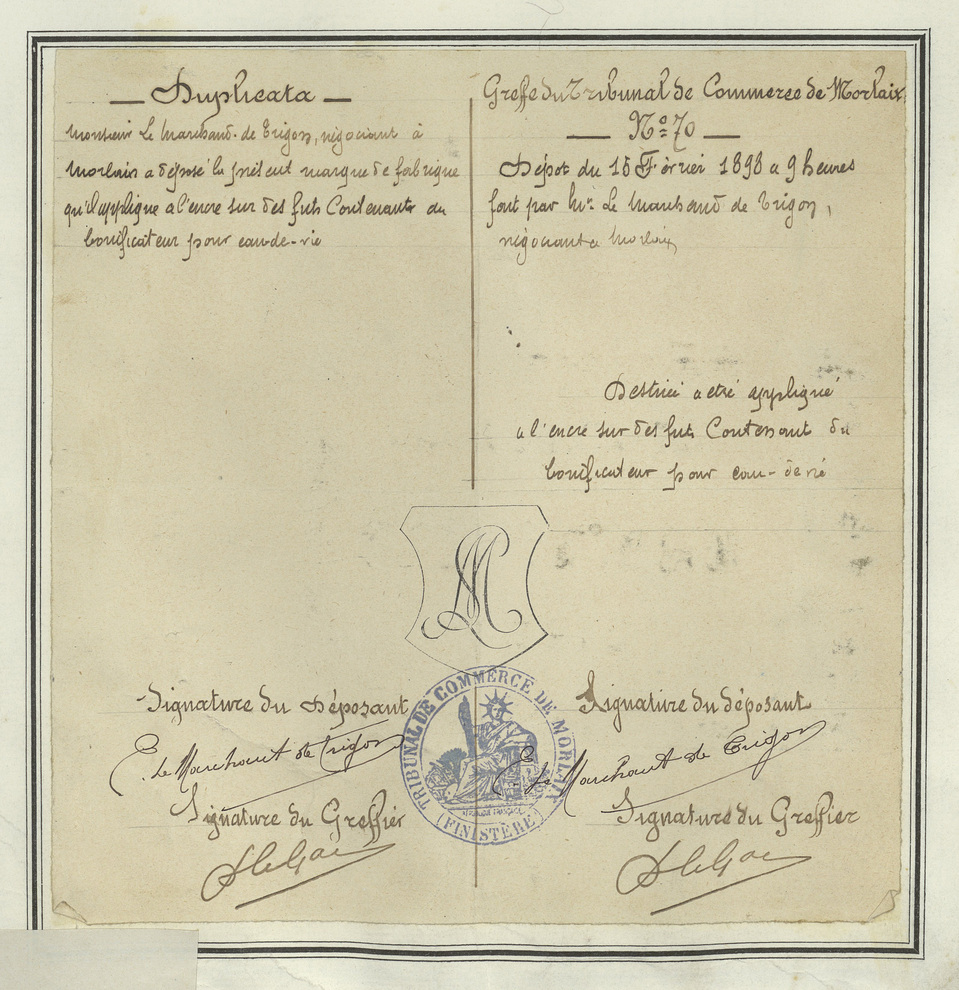 Duplicata
Monsieur Le Marchand de Trigon, négociant à
Morlaix a déposé la présent marque de fabrique
qu'il applique a l'encre sur des futs Contenants du
bonificateur pour eau-de-vie
Greffe du Tribunal de Commerce de Morlaix
No 70
Dépot du 15 Février 1898 a 9 heures
fait par Mr. Le Marchand de Trigon,
négociant a Morlaix
Destrié a etré appligué
a l'encre sur des futs Contenant du
bonificateur pour eau-de vie
M
Signature du Déposant
E. Le Marchant de Trigon
Signature du Greffier
Signature du déposant
E. Le Marchant de Trigon
Signature du Greffier
TRIBUNAL DE COMMERCE DE MORLAIX
(FINISTÈRE)